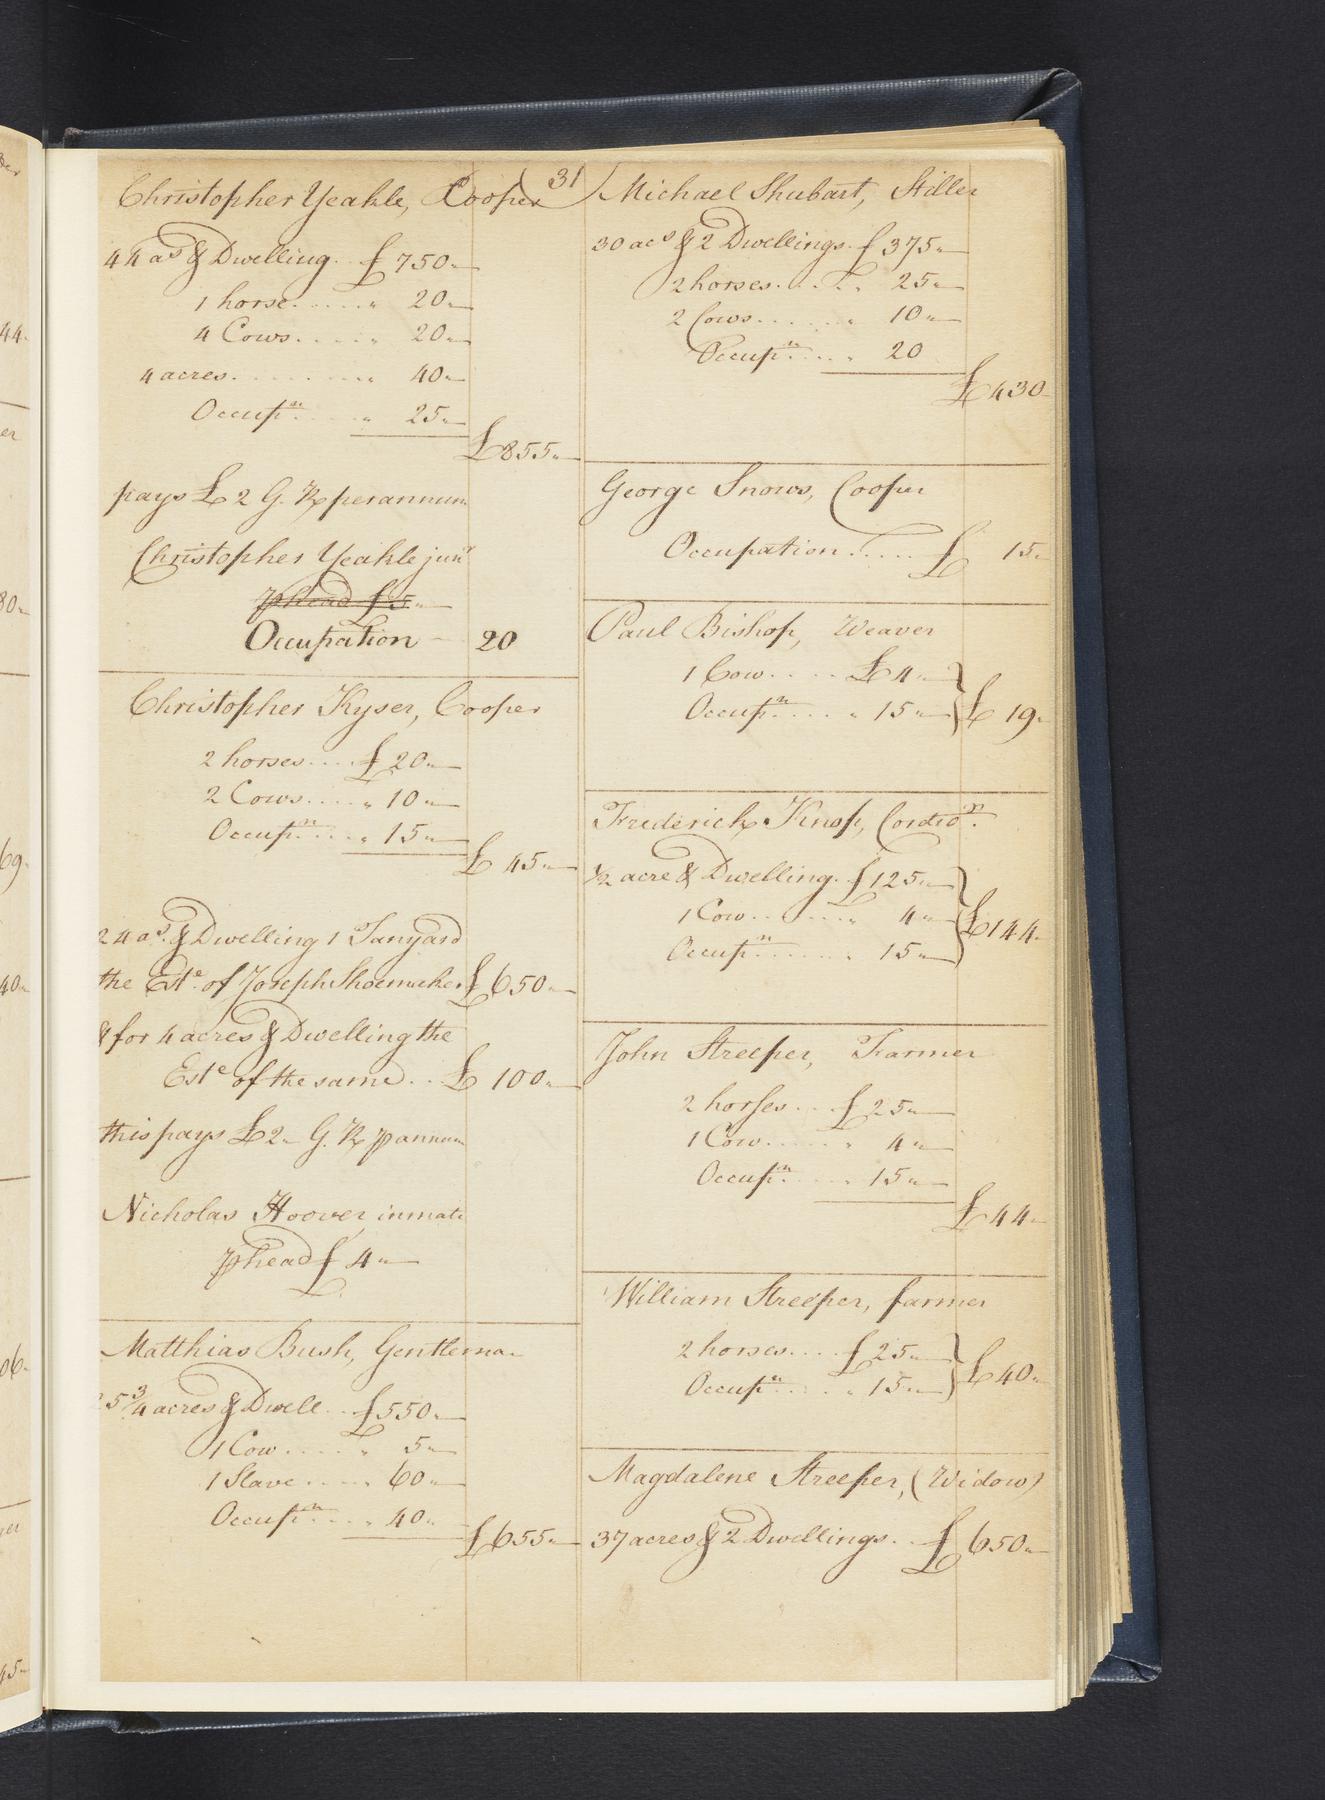 31
Christopher Yeakle, Cooper
44 as & Dwelling .. £ 750
1 horse ...... " 20
4 Cows ..... " 20
4 acres ......... " 40
Occupn .... " 25
£855
pays £2 G. R per annum
Christopher Yeakle junr
phead £5
Occupation 20
Christopher Kyser, Cooper
2 horses .... £ 20
2 Cows .... " 10
Occupn .... " 15
£ 45
24 as. & Dwelling 1 Tanyard
the Este. of Joseph Shoemaker £ 650
& for 4 acres & Dwelling the
Este of the same .. £ 100
this pays £2 G. R p annum
Nicholas Hoover inmate
phead £ 4
Matthias Bush, Gentleman
25 3/4 acres & Dwell .. £550
1 Cow .... " 5
1 Slave .... " 60
Occupn ... " 40
£655
Michael Shubart, Stiller
30 acs & 2 Dwellings. £ 375
2 horses ...... " 25
2 Cows ...... " 10
Occupn .... " 20
£430
George Snows, Cooper
Occupation ..... £ 15
Paul Bishop, Weaver
1 Cow .... £ 4
Occupn .... " 15
£ 19
Frederick Knop, Cordwr.
1/2 acre & Dwelling. £125
1 Cow ...... " 4
Occupn ...... " 15
£144
John Streeper, Farmer
2 horses ... £ 25
1 Cow ..... " 4
Occupn ... " 15
£44
William Streeper, farmer
2 horses .... £ 25
Occupn .... " 15
£40
Magdalene Streeper, (Widow)
37 acres & 2 Dwellings .. £ 650